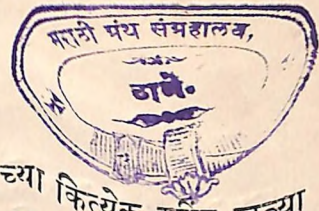 मराठी ग्रंथ संग्रहालय,
ठाणें.
च्या कित्येक